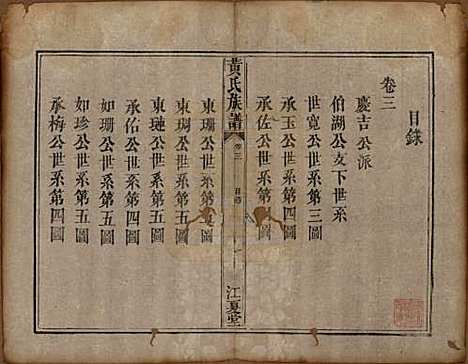 目錄
卷三
慶吉公派
伯湖公支下世系
世寬公世系第三圖
承玉公世系第四圖
承佐公世系第四圖
黃氏族譜
卷三
目錄
江夏堂
東珊公世系第五圖
東琱公世系第五圖
東璉公世系第五圖
承佑公世系第四圖
如珊公世系第五圖
如珍公世系第五圖
承梅公世系第四圖